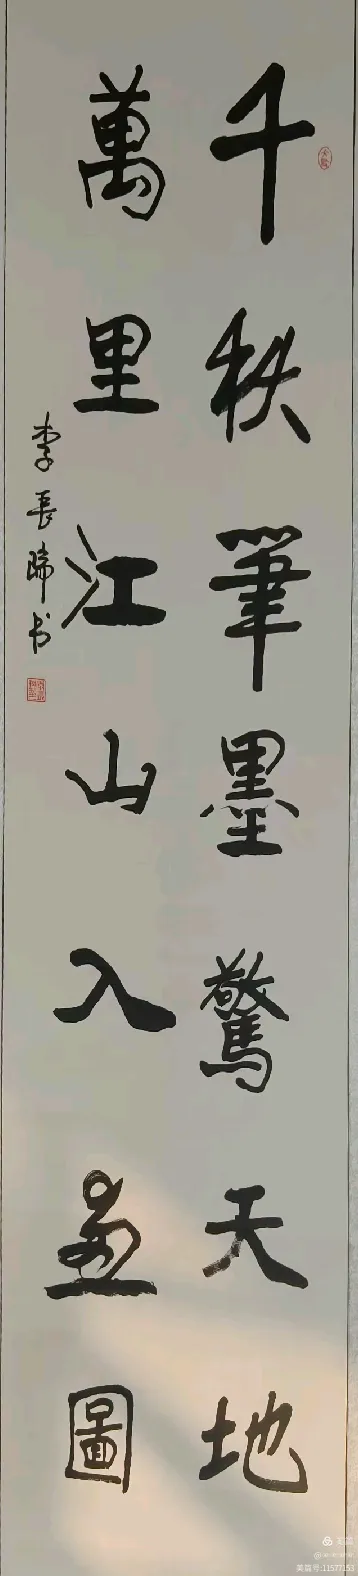 千秋筆墨驚天地
萬里江山入畫圖
李長歸书
美篇
美篇号:11577153